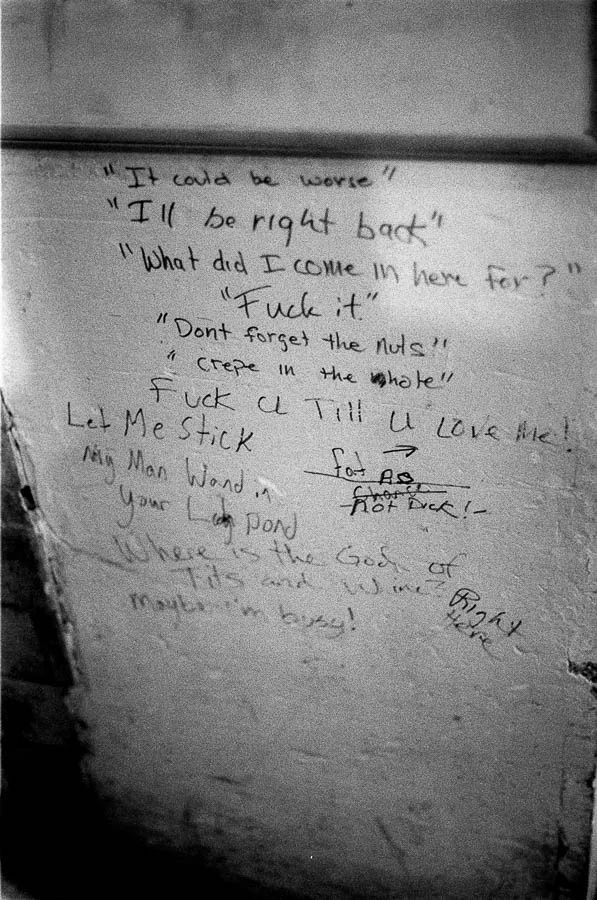 "It could be worse"
"I'll be right back"
"What did I come in here for?"
"Fuck it"
"Dont forget the nuts"
"crepe in the whole"
Fuck U Till U Love Me!
Let Me Stick
My Man Wand in
Your Lady pond
fat As
-Not Duck!-
Where is the God of
Tits and Wine?
maybe i'm busy!
Right
Here